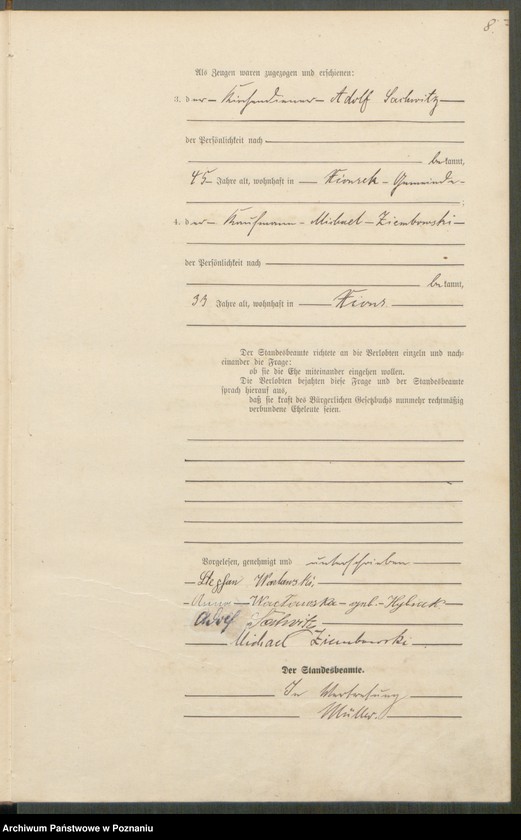 8.
Als Zeugen waren zugezogen und erschienen:
3. der Kirchendiener Adolf Sachwitz
der Persönlichkeit nach
bekannt,
45 Jahre alt, wohnhaft in Xionsek - Gemeinde
;
4. der Kaufmann Michael Ziembowski
der Persönlichkeit nach
bekannt,
33 Jahre alt, wohnhaft in Xions
Der Standesbeamte richtete an die Verlobten einzeln und nach-
einander die Frage:
ob sie die Ehe miteinander eingehen wollen.
Die Verlobten bejahten diese Frage und der Standesbeamte
sprach hierauf aus,
daß sie kraft des Bürgerlichen Gesetzbuchs nunmehr rechtmäßig
verbundene Eheleute seien.
Vorgelesen, genehmigt und unterschrieben
Stephan Wacławski
Anna Wacławska geb.
Adolf Sachwitz
Michael Ziembowski
Der Standesbeamte.
In Vertretung
Müller.
Archiwum Państwowe w Poznaniu